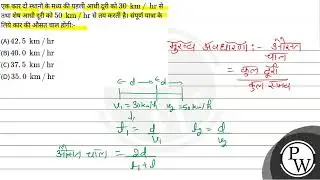 एक कार दो स्थानों के मध्य की पहली आधी दूरी को 30 km / hr से
तथा शेष आधी दूरी को 50 km / hr से तय करती है। संपूर्ण यात्रा के
लिये कार की औसत चाल होगी:-
(A) 42.5 km / hr
(B) 40.0 km / hr
(C) 37.5 km / hr
(D) 35.0 km / hr
मुख्य अवधारणा :- औसत
चाल
= कुल दूरी
कुल समय
d d
v₁ = 30 km/h v₂ = 50 km/h
t₁
t₁ = d/v₁ t₂ = d/v₂
औसत चाल = 2d
t₁ +
PW